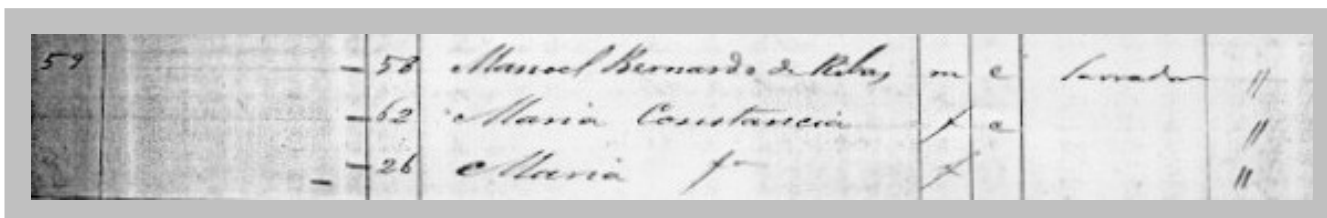 59 - 58 Manoel Bernardo de Ribas m c lavrador "
- 62 Maria Constancia f c "
- 26 Maria f f "